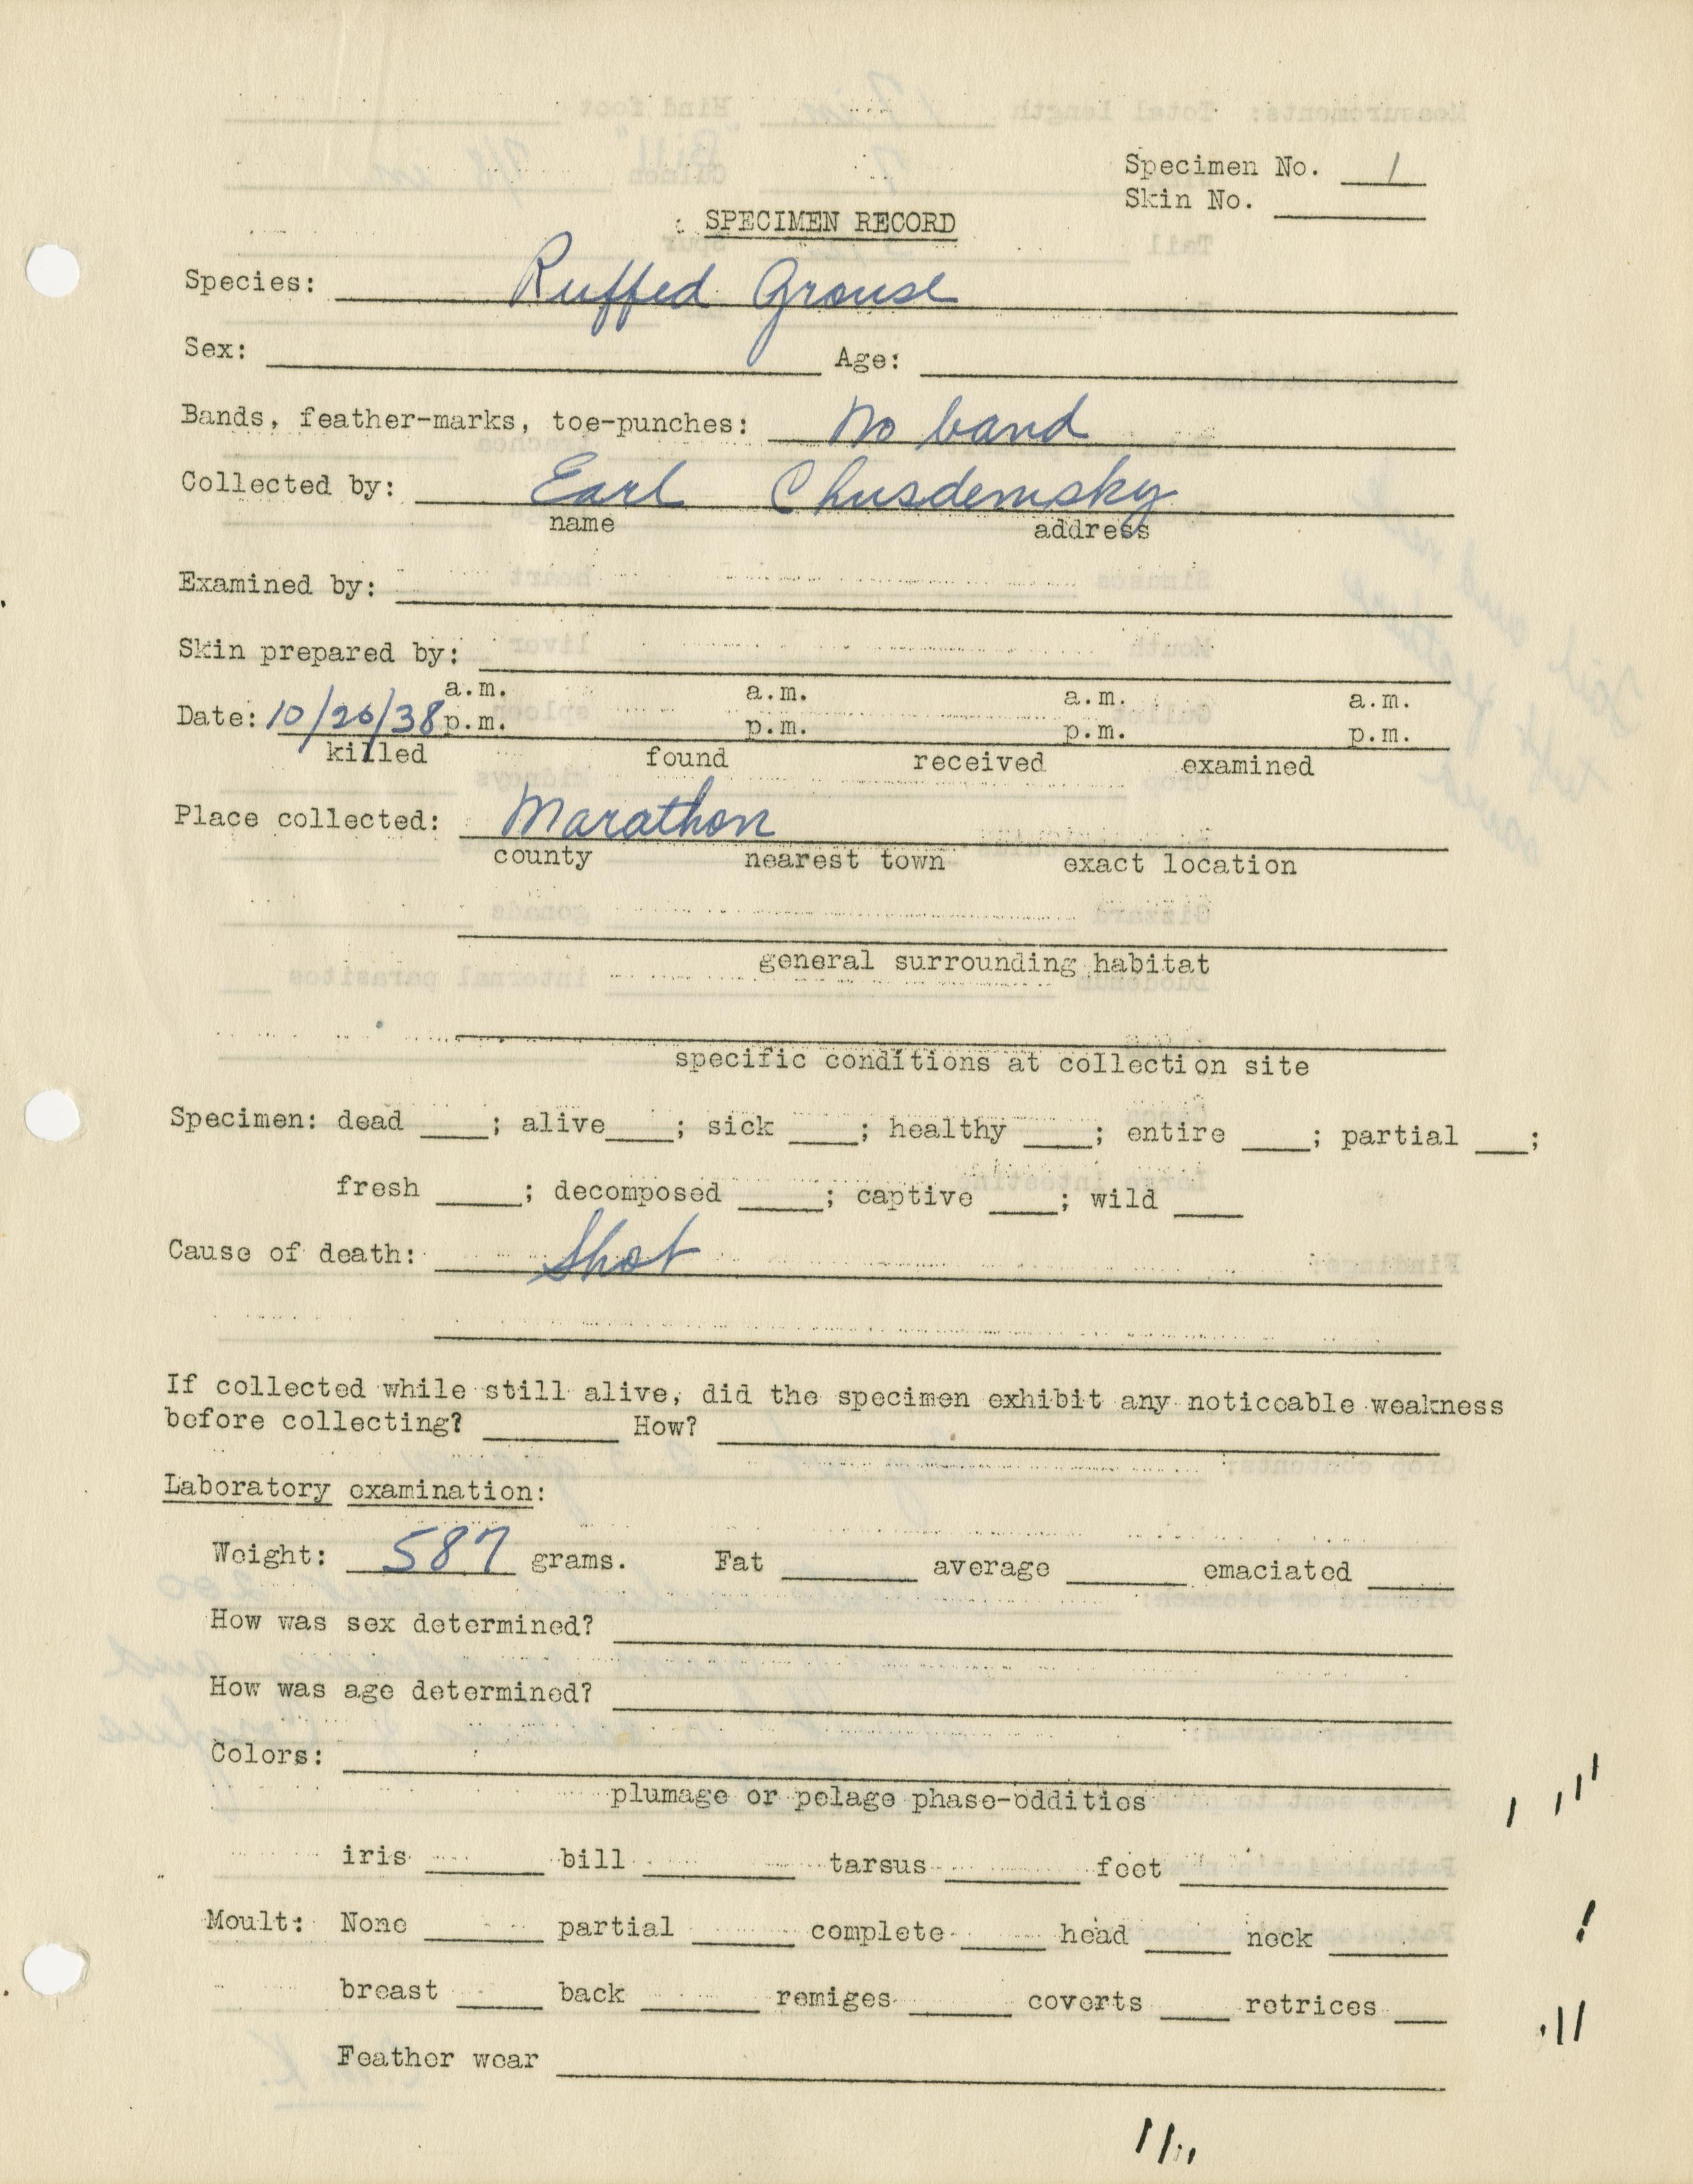 Specimen No. 1
Skin No.
SPECIMEN RECORD
Species: Ruffed Grouse
Sex: Age:
Bands, feather-marks, toe-punches: no band
Collected by: Earl Chusdemsky
name address
Examined by:
Skin prepared by:
a.m. a.m. a.m. a.m.
Date: 10/26/38 p.m. p.m. p.m. p.m.
killed found received examined
Place collected: Marathon
county nearest town exact location
general surrounding habitat
specific conditions at collection site
Specimen: dead ; alive ; sick ; healthy ; entire ; partial ;
fresh ; decomposed ; captive ; wild
Cause of death: Shot
If collected while still alive, did the specimen exhibit any noticeable weakness
before collecting? How?
Laboratory examination:
Weight: 587 grams. Fat average emaciated
How was sex determined?
How was age determined?
Colors:
plumage or pelage phase-oddities
iris bill tarsus foot
Moult: None partial complete head neck
breast back remiges coverts retrices
Feather wear